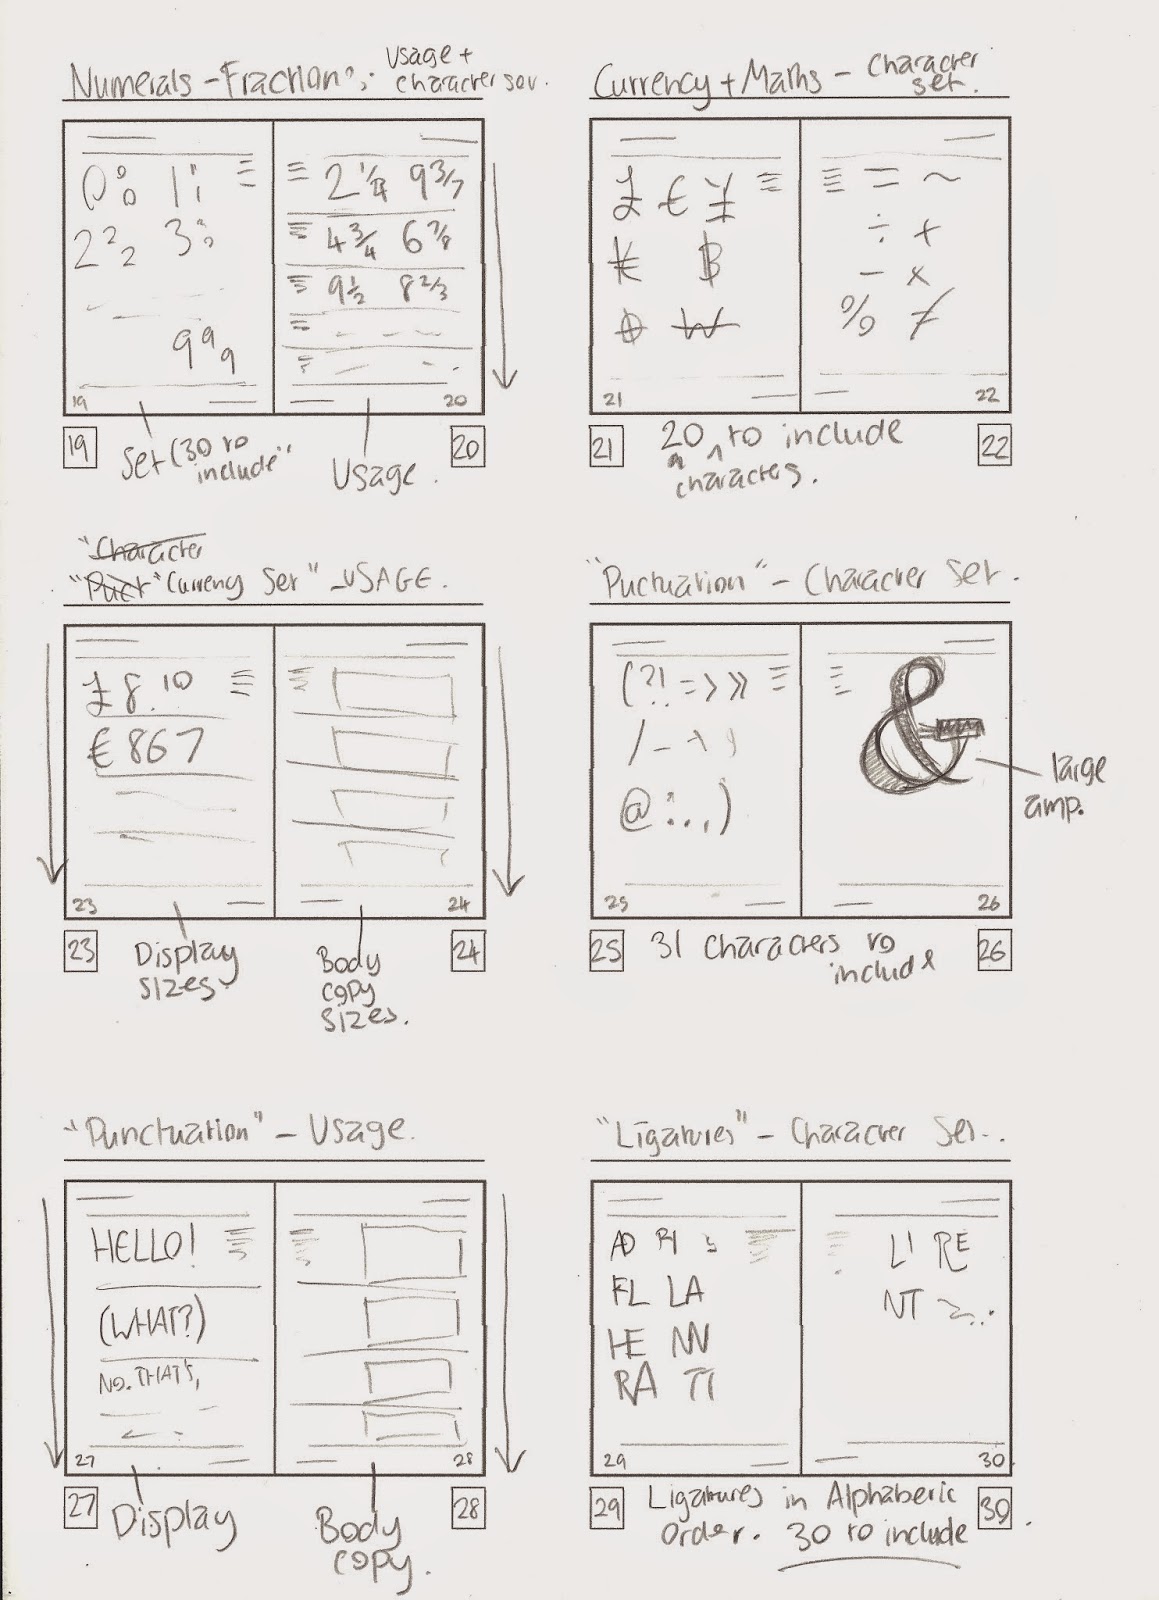 Numerals - Fractions:
usage +
character
0 0 0 1 1 1
2 2 2 3 3 3
9 9 9
2 1/4 9 3/7
4 3/4 6 7/8
9 1/2 8 2/3
19
20
19
Set (30 to
include"
Usage.
20
Currency + Maths - Character
set.
£ € ¥
= ~
÷ +
- ×
% ≠
21
22
21
20 ^ to include
characters.
22
"Character
"Puct" "Currency Set" - USAGE.
£8.10
€867
23
24
23
Display
sizes
Body
copy
sizes.
24
"Puctuation" - Character Set.
(?! = > »
/ -
@ : . , )
&
large
amp.
25
26
25
31 Characters to
include
26
"Punctuation" - Usage.
HELLO!
(WHAT?)
NO. THAT'S,
27
28
27
Display
Body
copy.
28
"Ligatures" - Character Set..
FL LA
HE NN
RA TI
LI RE
NT
29
30
29
Ligatures in Alphabetic
Order. 30 to include
30